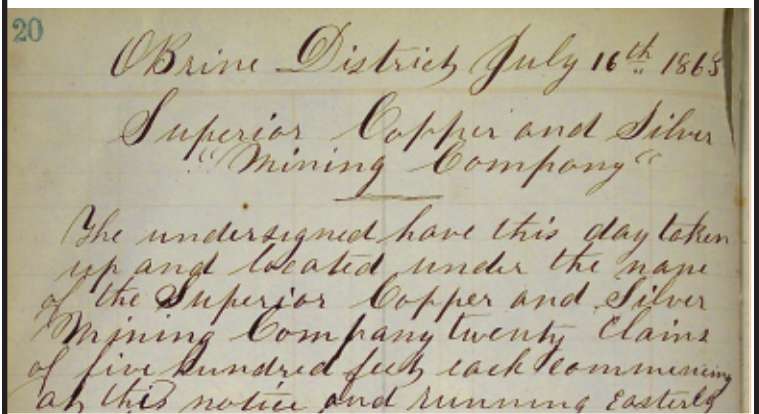 20
OBrine District July 16th 1863
Superior Copper and Silver
"Mining Company"
The undersigned have this day taken
up and located under the name
of the Superior Copper and Silver
Mining Company twenty Claims
of five hundred feet each commencing
at this notice and running Easterly